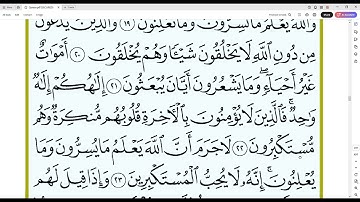 وَٱللَّهُ يَعۡلَمُ مَا تُسِرُّونَ وَمَا تُعۡلِنُونَ ١٩ وَٱلَّذِينَ يَدۡعُونَ
مِن دُونِ ٱللَّهِ لَا يَخۡلُقُونَ شَيۡـٔٗا وَهُمۡ يُخۡلَقُونَ ٢٠ أَمۡوَٰتٌ
غَيۡرُ أَحۡيَآءٖۖ وَمَا يَشۡعُرُونَ أَيَّانَ يُبۡعَثُونَ ٢١ إِلَٰهُكُمۡ إِلَٰهٞ
وَٰحِدٞۚ فَٱلَّذِينَ لَا يُؤۡمِنُونَ بِٱلۡأٓخِرَةِ قُلُوبُهُم مُّنكِرَةٞ وَهُم
مُّسۡتَكۡبِرُونَ ٢٢ لَا جَرَمَ أَنَّ ٱللَّهَ يَعۡلَمُ مَا يُسِرُّونَ وَمَا
يُعۡلِنُونَۚ إِنَّهُۥ لَا يُحِبُّ ٱلۡمُسۡتَكۡبِرِينَ ٢٣ وَإِذَا قِيلَ لَهُم